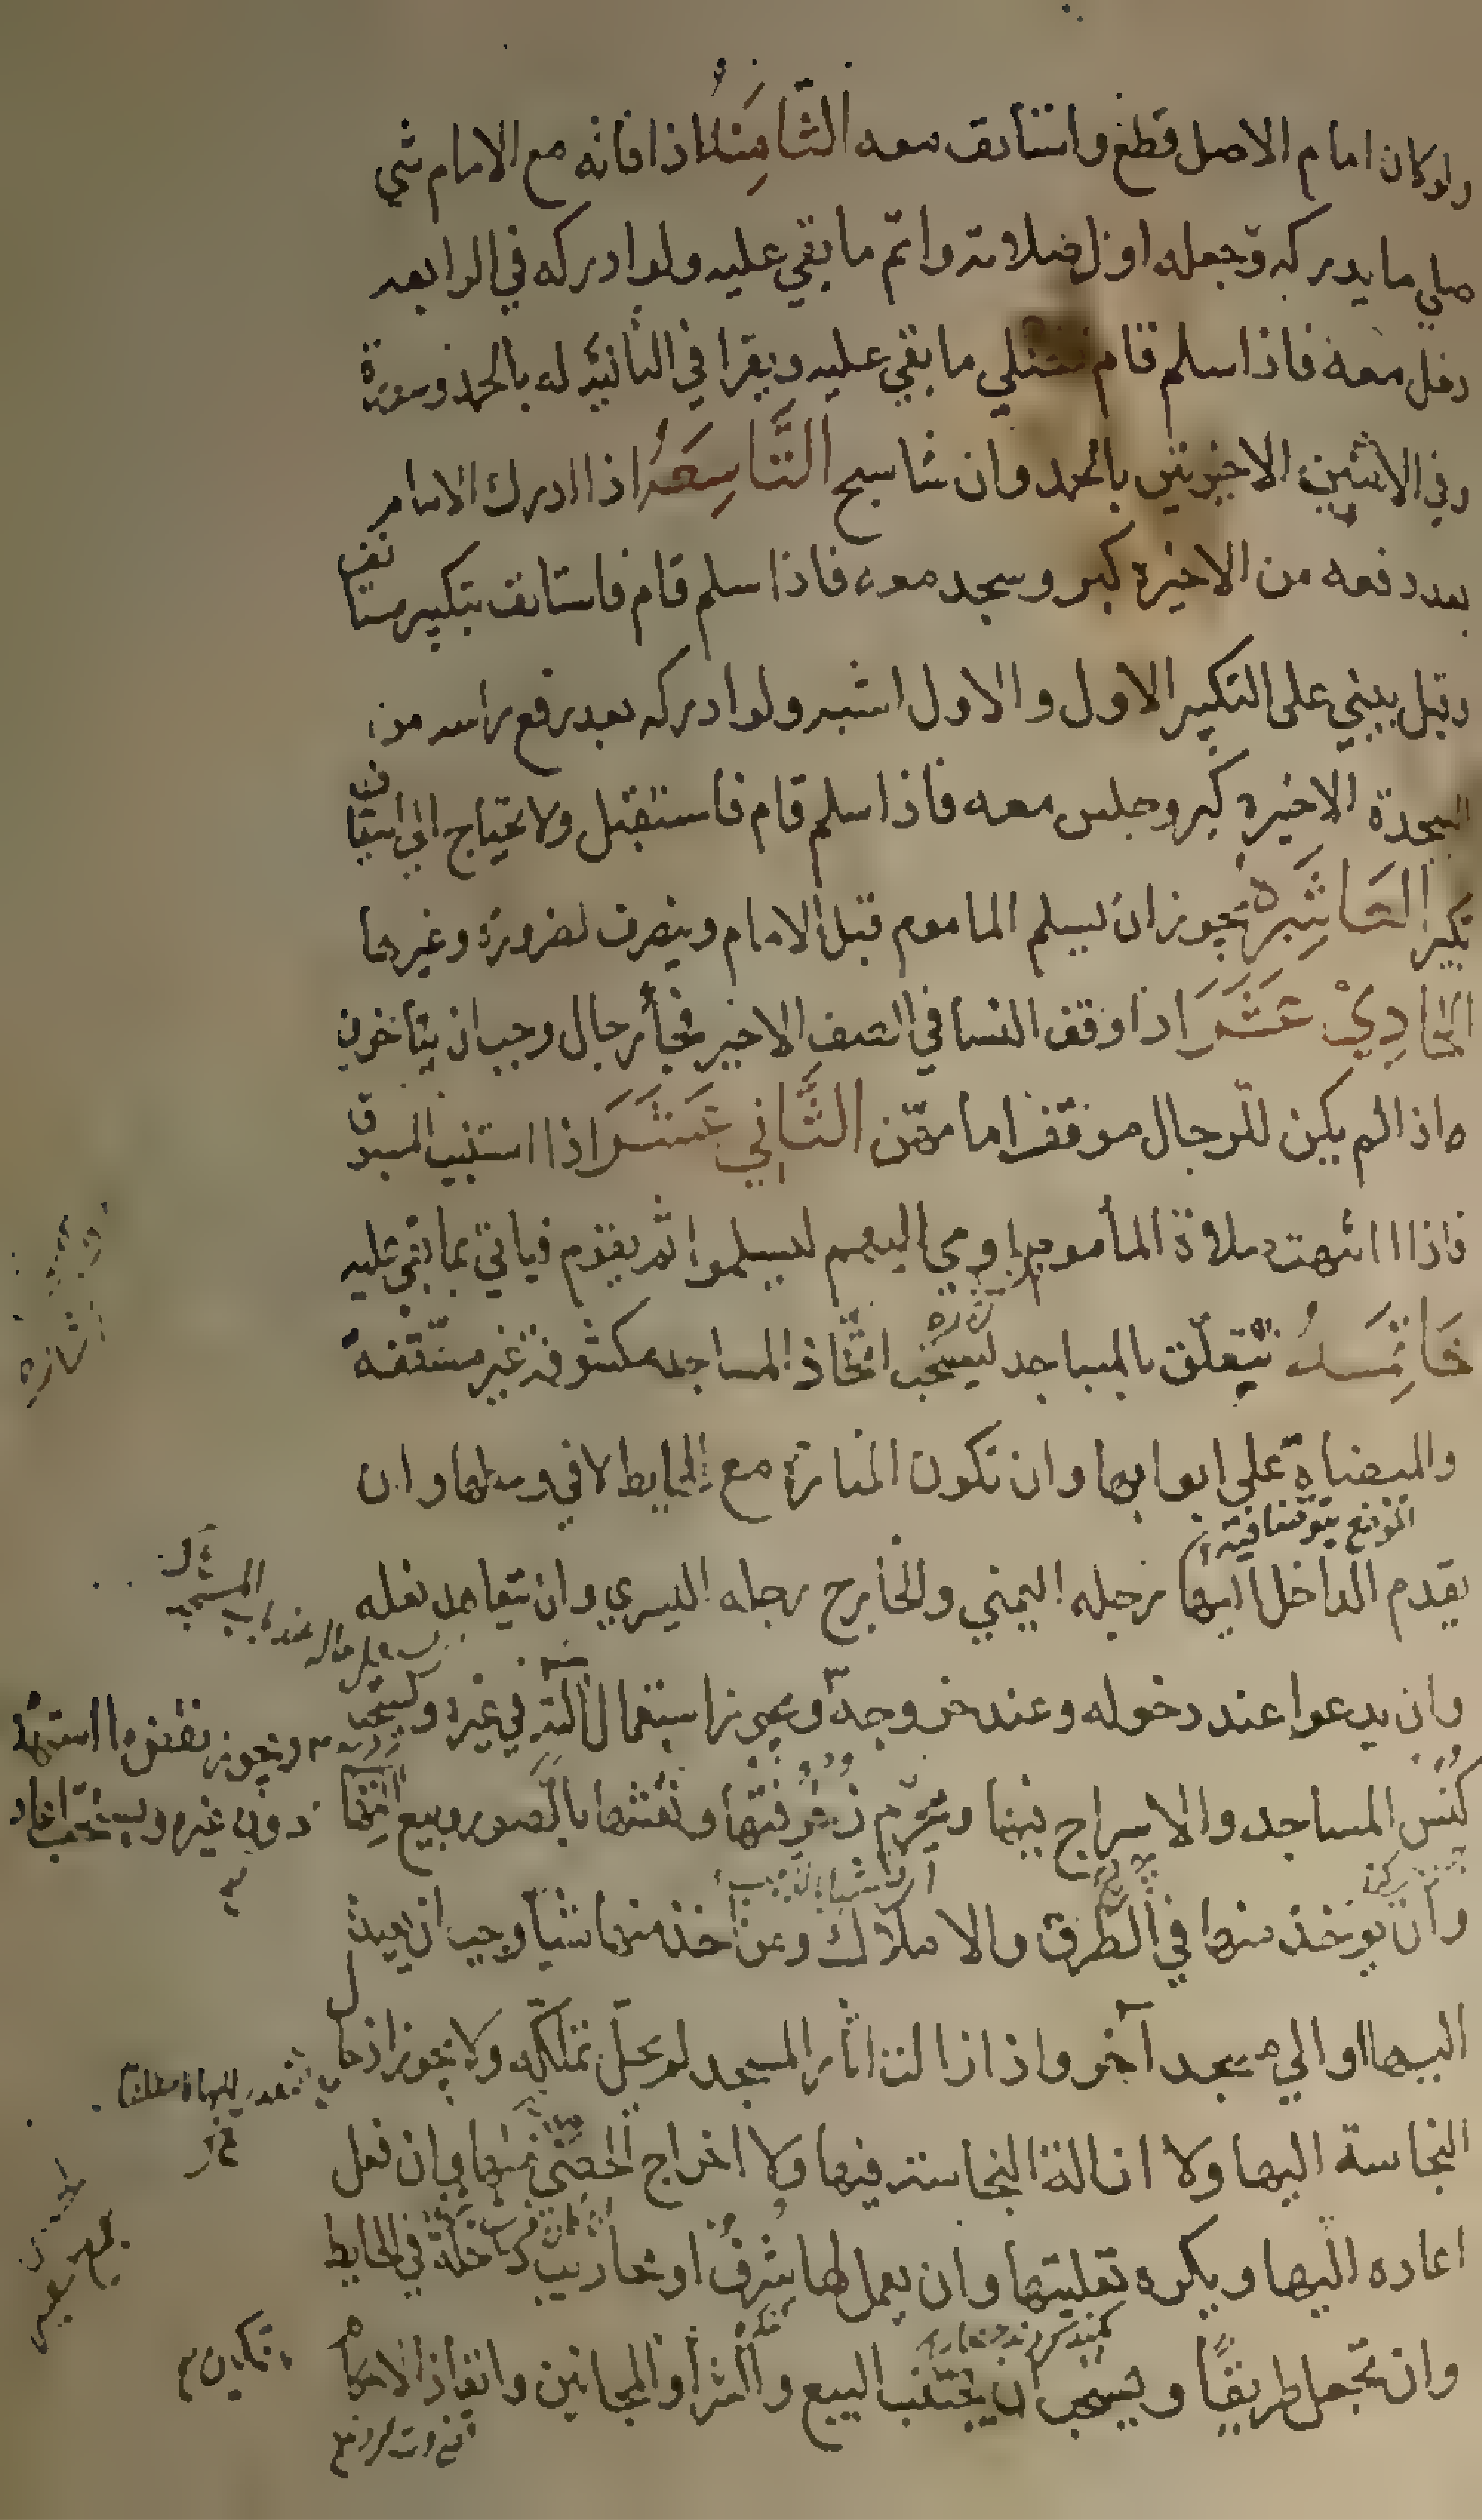 ولو كان امام الاصل قطع واستانف معه الثَّامِنَةُ اذا فاته مع الامام شي
صلي ما يدركه وجعله اول صلاته واتم ما بقي عليه ولو ادركه في الرابعه
دخل معه فاذا سلم قام فصلي ما بقي عليه ويقرا في الثانيه له بالحمد وسورة
وفي الاثنين الاخيرتين بالحمد وان شا سبح التَّاسِعَةُ اذا ادرك الامام
بعد رفعه من الاخيره كبر وسجد معه فاذا سلم قام فاستانف بتكبير مستانف
وقيل يبني على التكبير الاول والاول اشبه ولو ادركه بعد رفع راسه من
السجدة الاخيره كبر وجلس معه فاذا سلم قام فاستقبل ولا يحتاج الي استيناف
تكبير العَاشِرَةُ يجوز ان يسلم الماموم قبل الامام وينصرف لضرورة وغيرها
الحَادِيْ عَشَرَ اذا وقف النسا في الصف الاخير فجأ رجال وجب ان يتاخرن
اذا لم يكن للرجال موقف امامهن الثَّانِي عَشَرَ اذا استنيب المسبوق
فاذا انتهت صلاة المأمومين اومي اليهم ليسلموا ثم يقوم فياتي بما بقي عليه
خَاتِمَةُ تتعلق بالمساجد يستحب اتخاذ المساجد مكشوفة غير مسقفة
والميضاة علي ابوابها وان تكون المنارة مع الحايط لا في وسطها وان
يقدم الداخل اليها رجله اليمني والخارج رجله اليسري وان يتعاهد نعله
وان يدعوا عند دخوله وعند خروجه ويجوز استعمال آلته في غيره ويستحب
ويجوز نقض ما استهدم
دون غيره ويستحب اعادته
كنس المساجد والاسراج فيها ويحرم زخرفتها ونقشها بالصور وبيع آلتها
وان يوخذ منها في الطرق والاملاك ومن اخذ منها شيا وجب ان يعيده
اليها او الي مسجد آخر واذا زالت اثار المسجد لم يحل تملكه ولا يجوز ادخال
النجاسة اليها ولا ازالة النجاسة فيها ولا اخراج الحصي منها وان فعل
اعاده اليها ويكره تعليتها وان يعمل لها شرف او محاريب داخلة في الحايط
وان تجعل طريقًا ويستحب ان يجتنب البيع والشرا والمجانين وانفاذ الاحكام